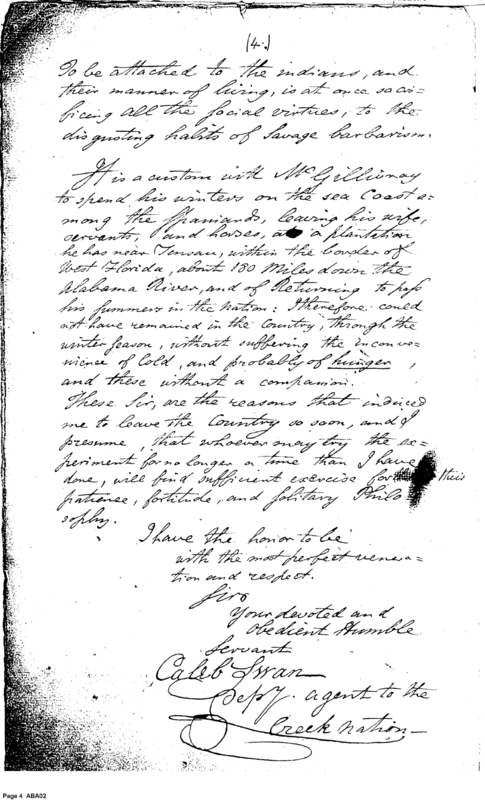 (4.)
To be attached to the indians, and
their manner of living, is at once sacri-
ficing all the social virtues, to the
disgusting habits of savage barbarism.
It is a custom with McGillivray
to spend his winters on the sea Coast a-
mong the Spaniards, leaving his wife,
servants, and horses, at a plantation
he has near Tensau, within the border of
West Florida, about 180 Miles down the
Alabama River, and of Returning to pass
his summers in the nation: I therefore could
not have remained in the Country, through the
winter season, without suffering the inconve-
nience of Cold, and probably of hunger,
and these without a companion.
These Sir, are the reasons that induced
me to leave the Country so soon, and I
presume, that whoever may try the ex=
periment for no longer a time than I have
done, will find sufficient exercise for their
patience, fortitude, and solitary Philo
sophy.
I have the honor to be
with the most perfect venera=
tion and respect.
Sir
Your devoted and
Obedient Humble
Servant
Caleb Swan
Depy. agent to the
Creek Nation
Page 4 ABA02